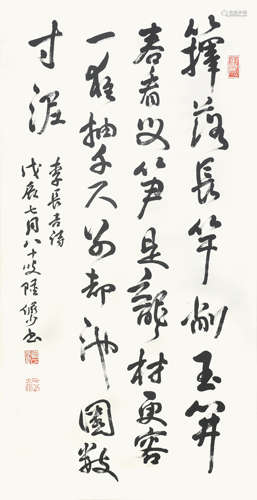 籜落長竿削玉開
君看母笋是龍材更容
一夜抽千尺別却池園數
寸泥
李長吉詩
戊辰七月八十叟陸儼少書